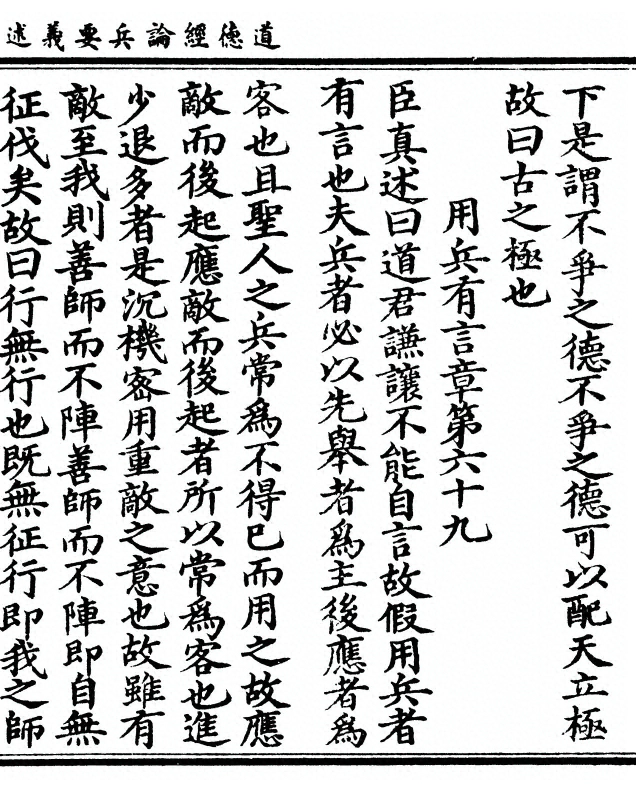 道德經論兵要義述
下是謂不爭之德不爭之德可以配天立極
故曰古之極也
用兵有言章第六十九
臣真述曰道君謙讓不能自言故假用兵者
有言也夫兵者必以先舉者為主後應者為
客也且聖人之兵常為不得已而用之故應
敵而後起應敵而後起者所以常為客也進
少退多者是沉機密用重敵之意也故雖有
敵至我則善師而不陣善師而不陣即自無
征伐矣故曰行無行也既無征行即我之師